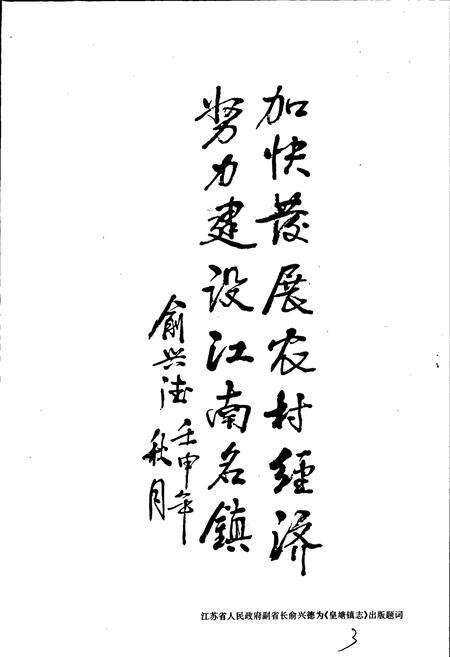 加快發展农村經济
努力建设江南名鎮
俞兴德
壬申年
秋月
江苏省人民政府副省长俞兴德为《皇塘镇志》出版题词
3